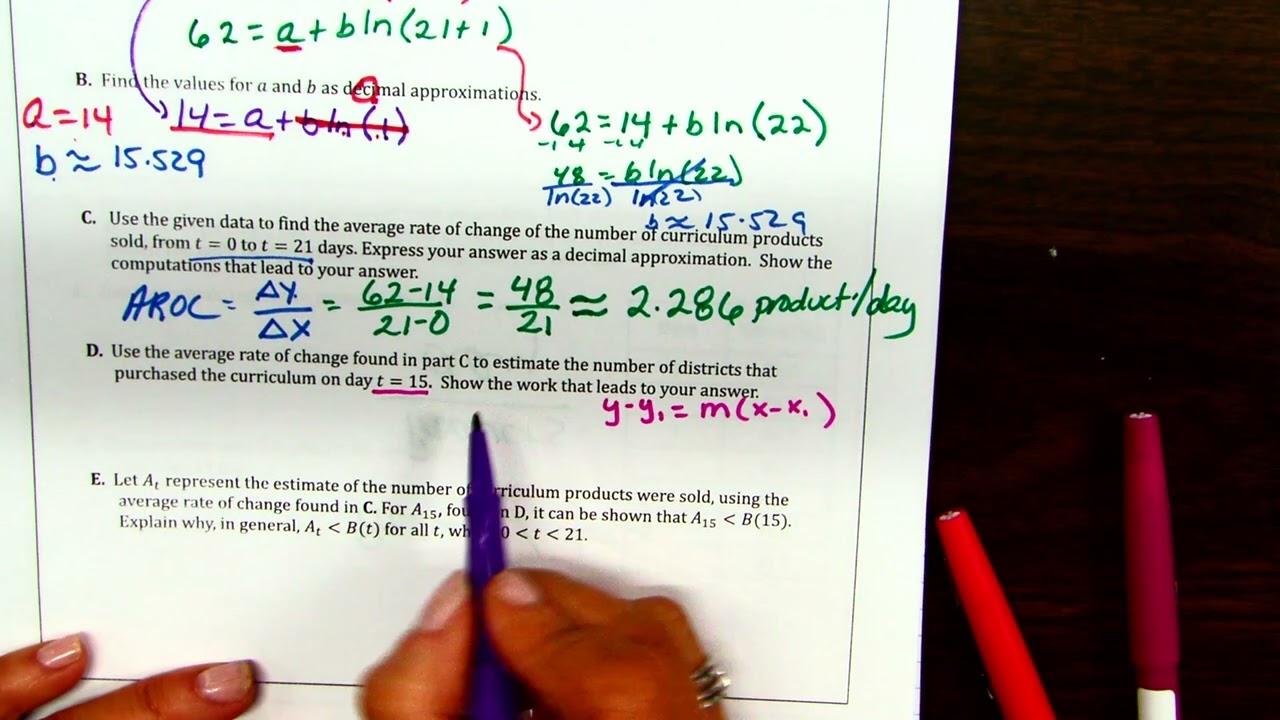 62 = a + b ln(21+1)
B. Find the values for a and b as decimal approximations.
a = 14
b ≈ 15.529
14 = a + b ln(1)
62 = 14 + b ln(22)
-14 -14
48 = b ln(22)
ln(22) ln(22)
b ≈ 15.529
C. Use the given data to find the average rate of change of the number of curriculum products
sold, from t = 0 to t = 21 days. Express your answer as a decimal approximation. Show the
computations that lead to your answer.
AROC = ΔY/ΔX = 62-14/21-0 = 48/21 ≈ 2.286 product/day
D. Use the average rate of change found in part C to estimate the number of districts that
purchased the curriculum on day t = 15. Show the work that leads to your answer.
y-y₁ = m(x-x₁)
E. Let Aₜ represent the estimate of the number of curriculum products were sold, using the
average rate of change found in C. For A₁₅, in D, it can be shown that A₁₅ < B(15).
Explain why, in general, Aₜ < B(t) for all t, 0 < t < 21.